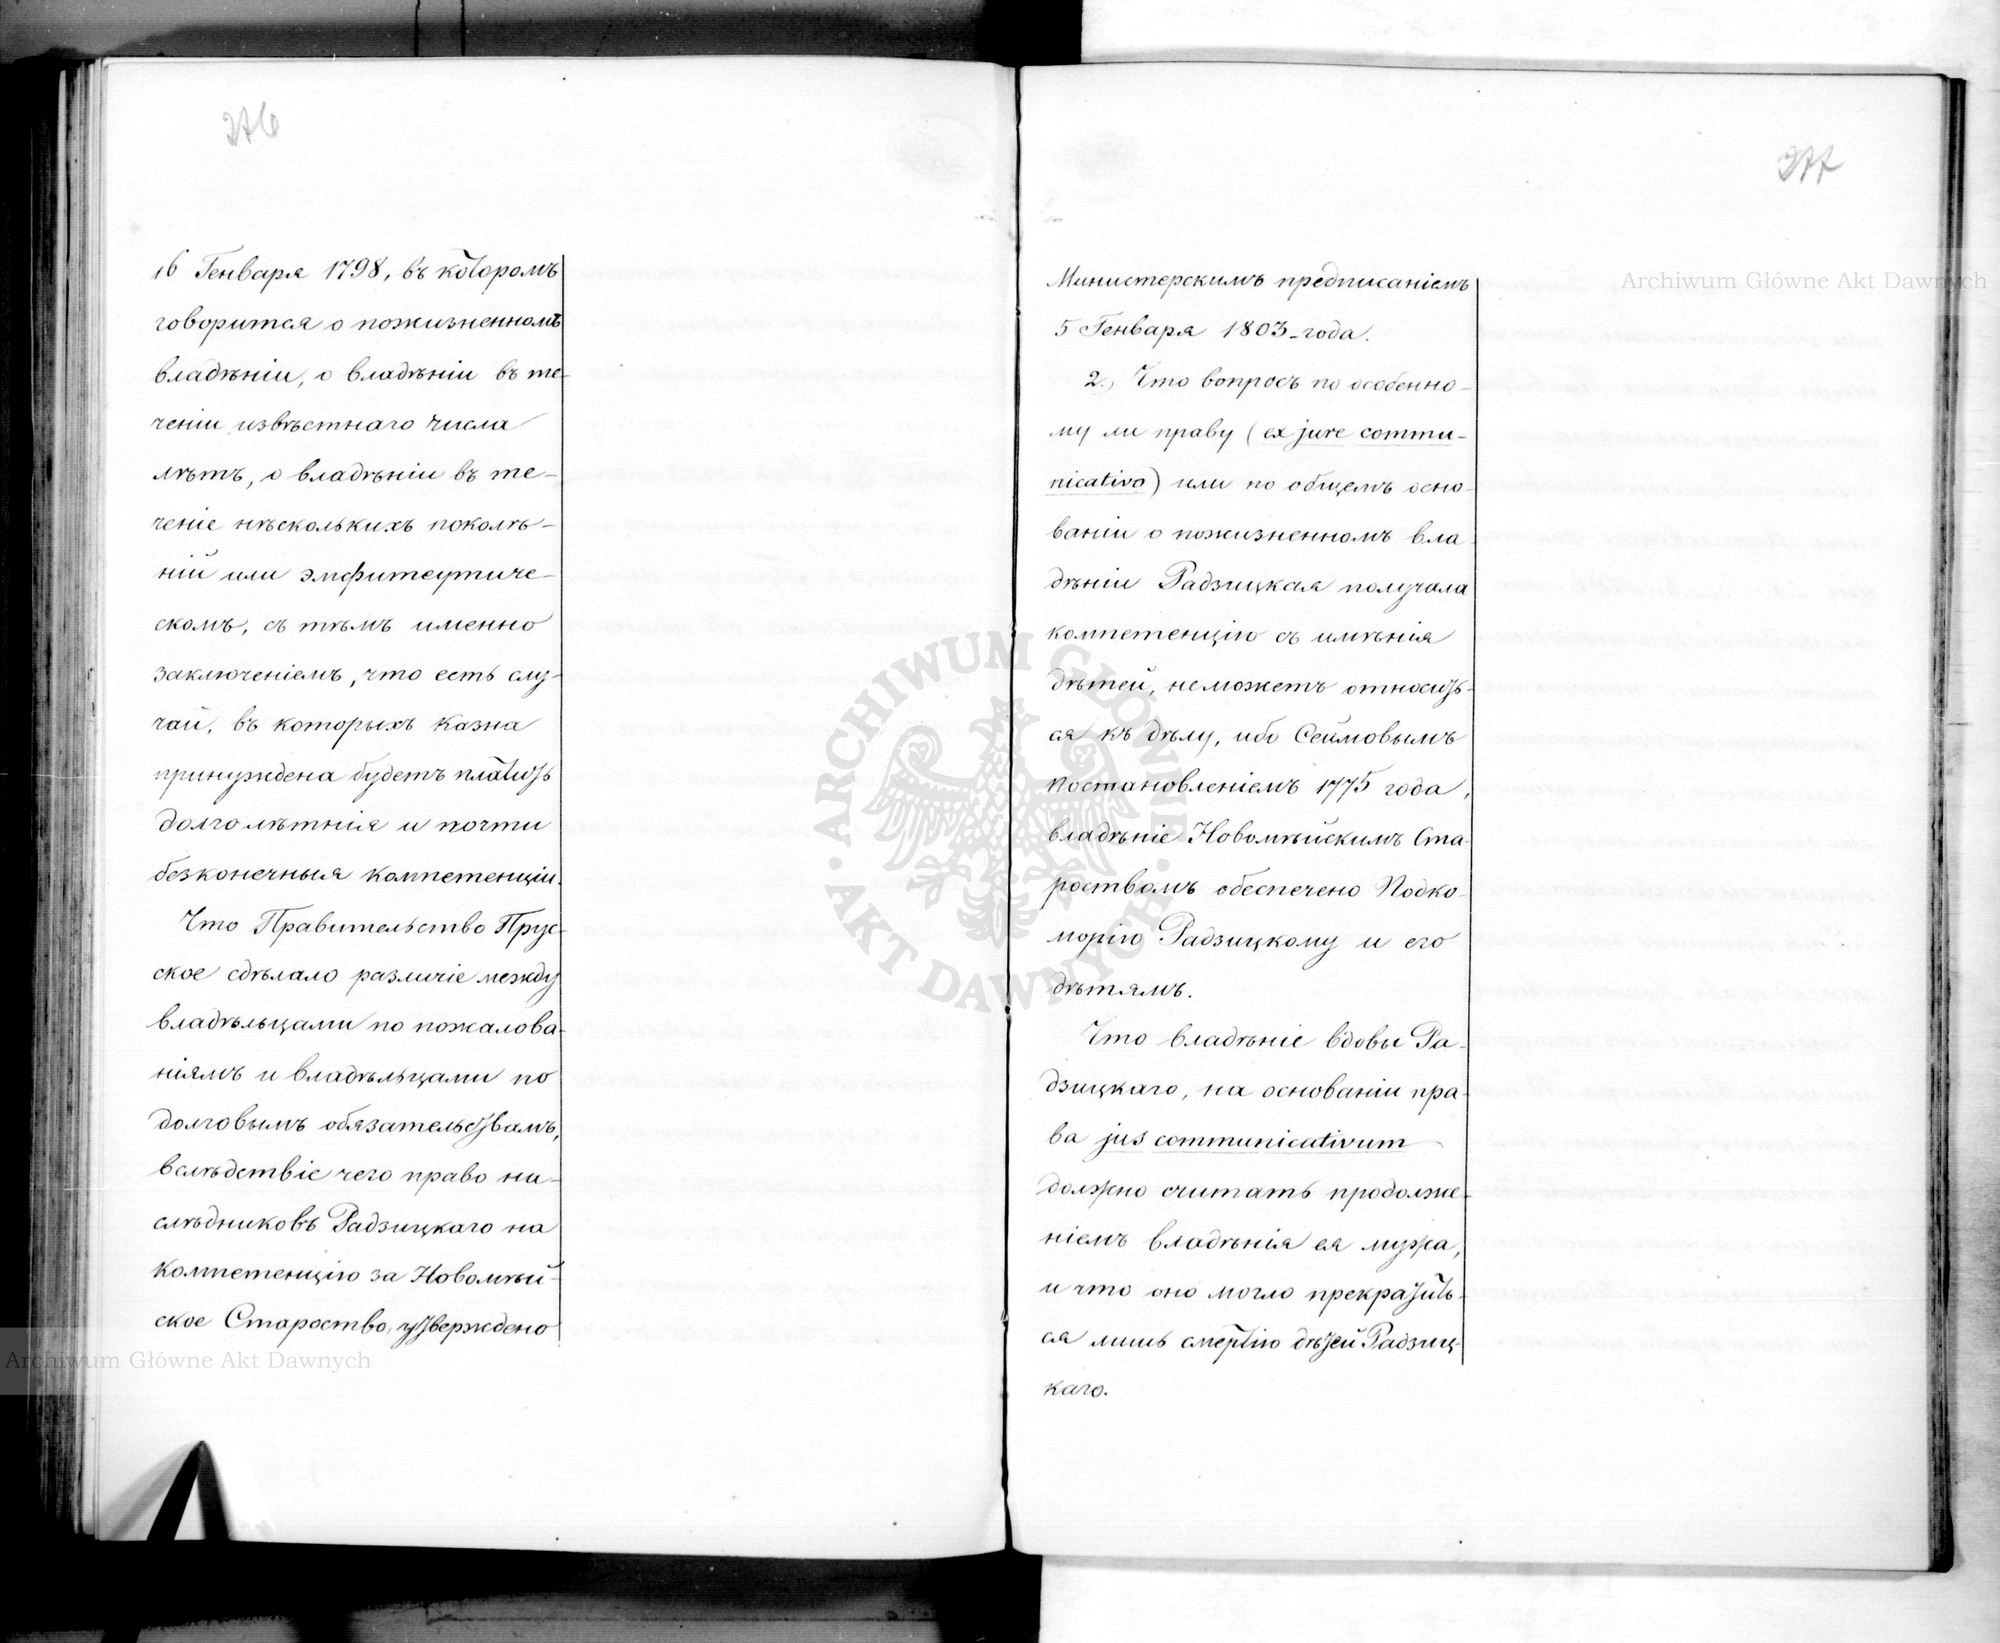 276
16 Генваря 1798, въ которомъ
говорится о пожизненномъ
владѣніи, о владѣніи въ те-
ченіи извѣстнаго числа
лѣтъ, о владѣніи въ те-
ченіе нѣсколькихъ поколѣ-
ній или эмфитеутиче-
скомъ, съ тѣмъ именно
заключеніемъ, что есть слу-
чаи, въ которыхъ казна
принуждена будетъ платить
долголѣтнія и почти
безконечныя компетенціи.
Что Правительство Прус-
ское сдѣлало различіе между
владѣльцами по пожалова-
ніямъ и владѣльцами по
долговымъ обязательствамъ,
вслѣдствіе чего право на-
слѣдниковъ Радзицкаго на
компетенцію за Новомѣй-
ское Староство, утверждено
277
Министерскимъ предписаніемъ
5 Генваря 1803 года.
2., Что вопросъ по особенно-
му ли праву (ex jure commu-
nicativo) или по общемъ осно-
ваніи о пожизненномъ вла-
дѣніи Радзицкая получала
компетенцію съ имѣнія
дѣтей, не можетъ относить-
ся къ дѣлу, ибо Сеймовымъ
постановленіемъ 1775 года,
владѣніе Новомѣйскимъ Ста-
роствомъ обеспечено Подко-
морію Радзицкому и его
дѣтямъ.
Что владѣніе вдовы Ра-
дзицкаго, на основаніи пра-
ва jus communicativum
должно считать продолже-
ніемъ владѣнія ея мужа,
и что оно могло прекратить-
ся лишь смертію дѣтей Радзиц-
каго.
Archiwum Główne Akt Dawnych
Archiwum Główne Akt Dawnych
ARCHIWUM GŁÓWNE · AKT DAWNYCH ·